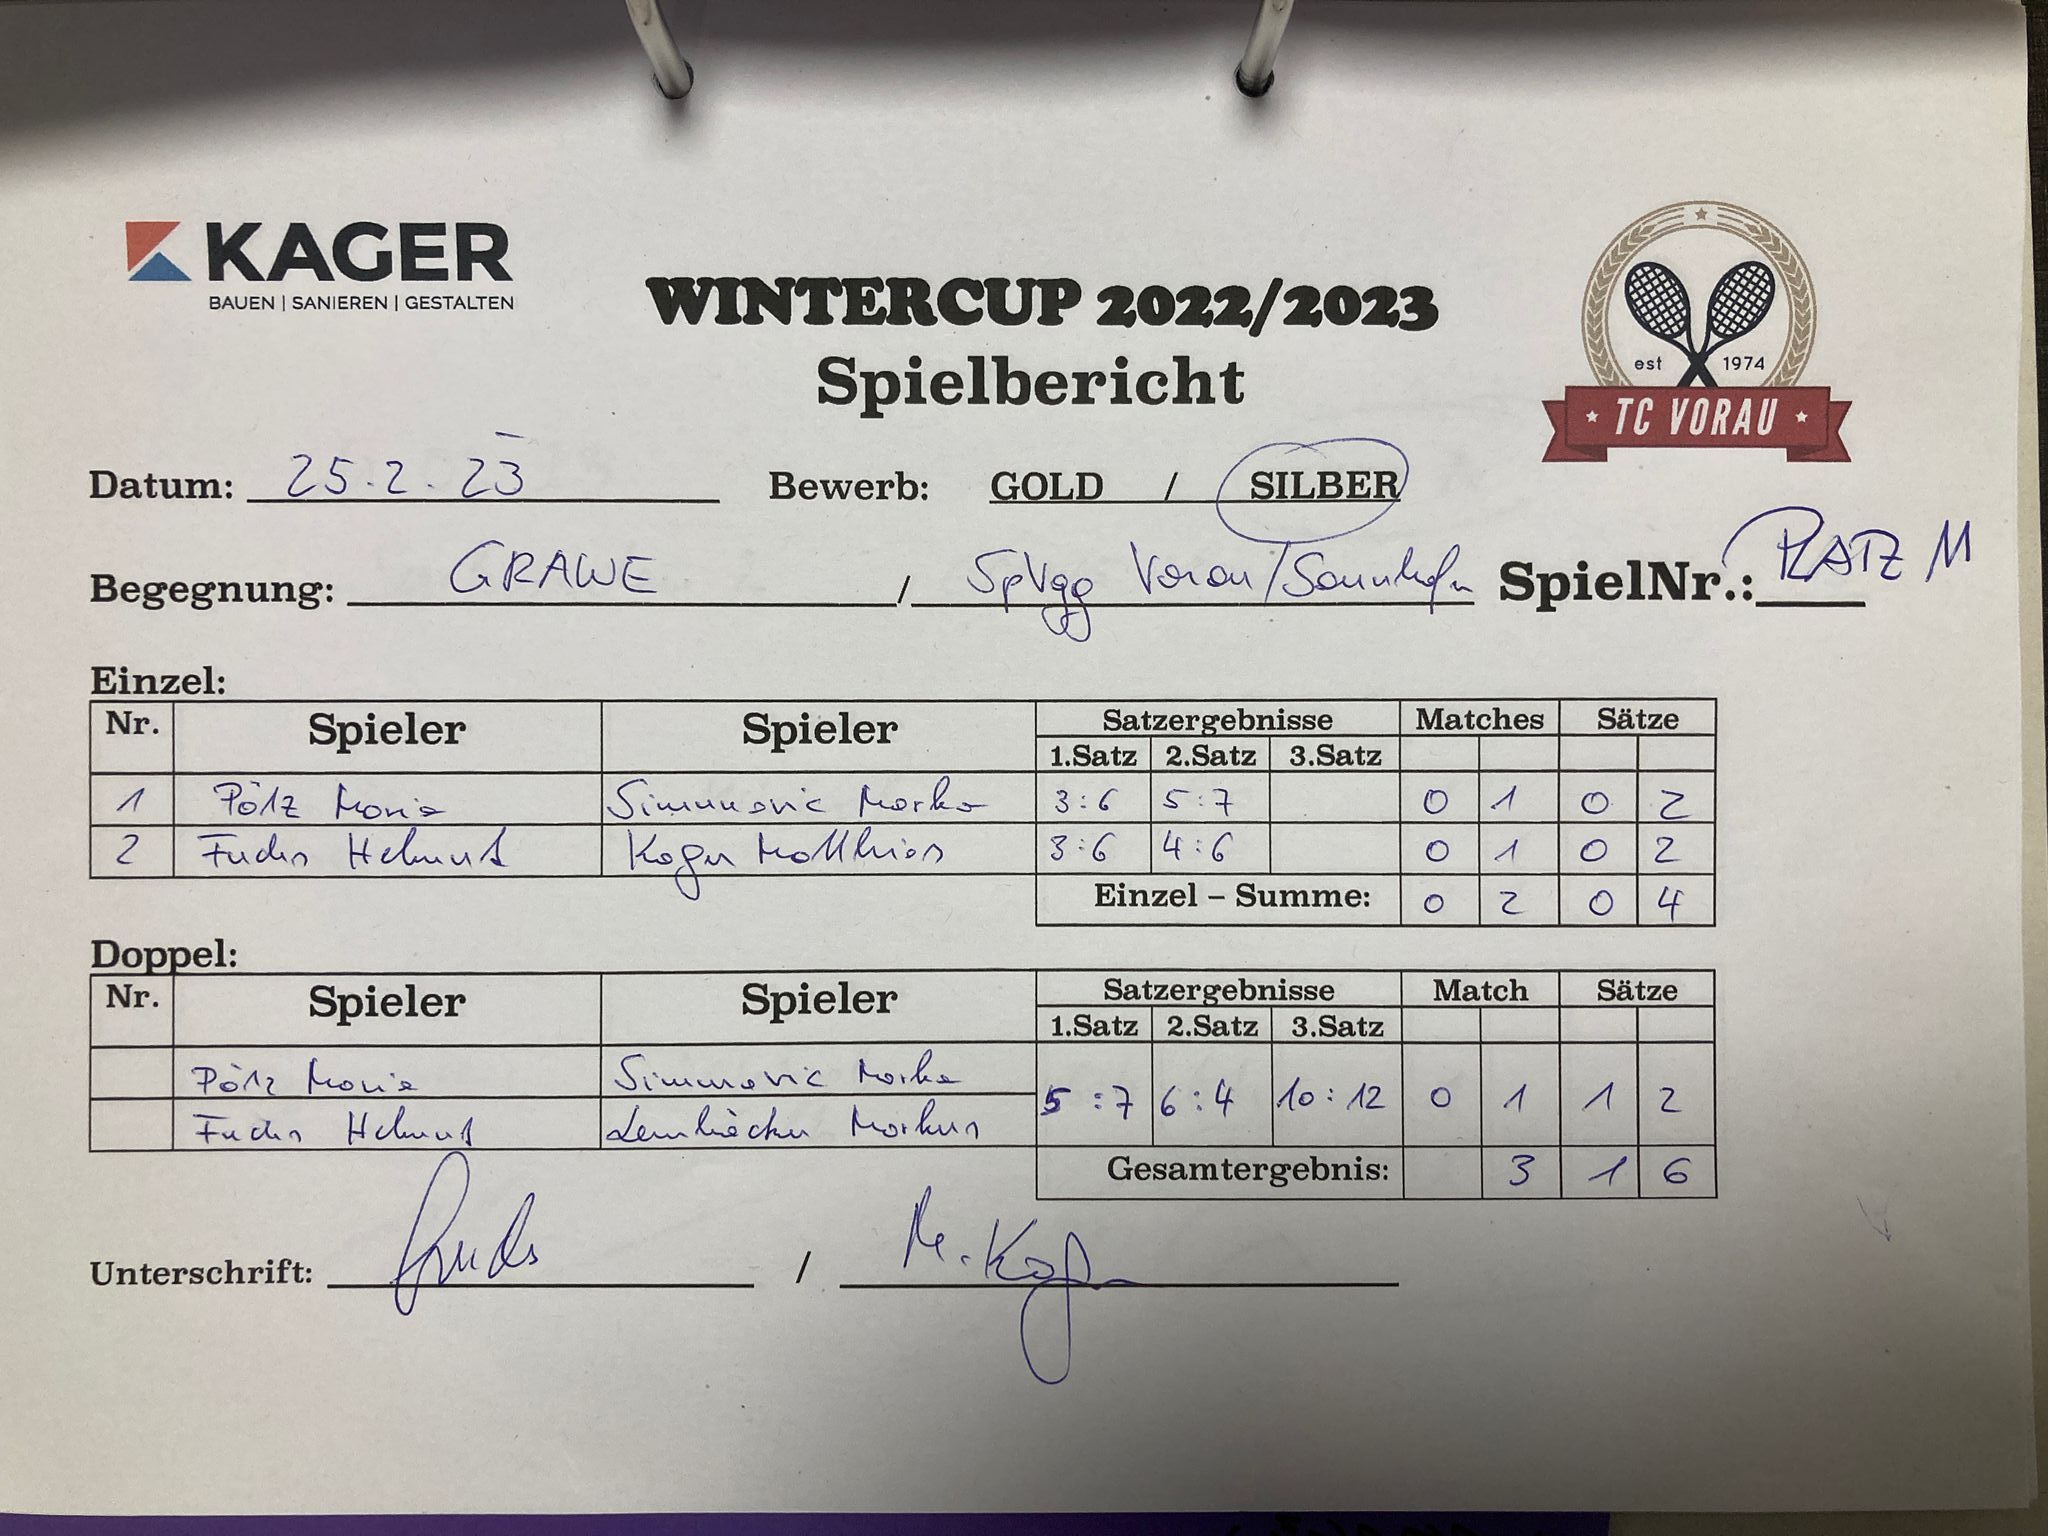 KAGER
BAUEN | SANIEREN | GESTALTEN
WINTERCUP 2022/2023
Spielbericht
est 1974
TC VORAU
Datum: 25.2.23 Bewerb: GOLD / SILBER
Begegnung: GRAWE / SpVgg Vorau/Sonnhofn SpielNr.: PLATZ 11
Einzel:
Nr. Spieler Spieler Satzergebnisse Matches Sätze
1.Satz 2.Satz 3.Satz
1 Pölz Mario Simunovic Marko 3:6 5:7 0 1 0 2
2 Fuchs Helmut Kager Matthias 3:6 4:6 0 1 0 2
Einzel – Summe: 0 2 0 4
Doppel:
Nr. Spieler Spieler Satzergebnisse Match Sätze
1.Satz 2.Satz 3.Satz
Pölz Mario Simunovic Marko
5:7 6:4 10:12 0 1 1 2
Fuchs Helmut Markus
Gesamtergebnis: 3 1 6
Unterschrift: Fuchs / M. Kager